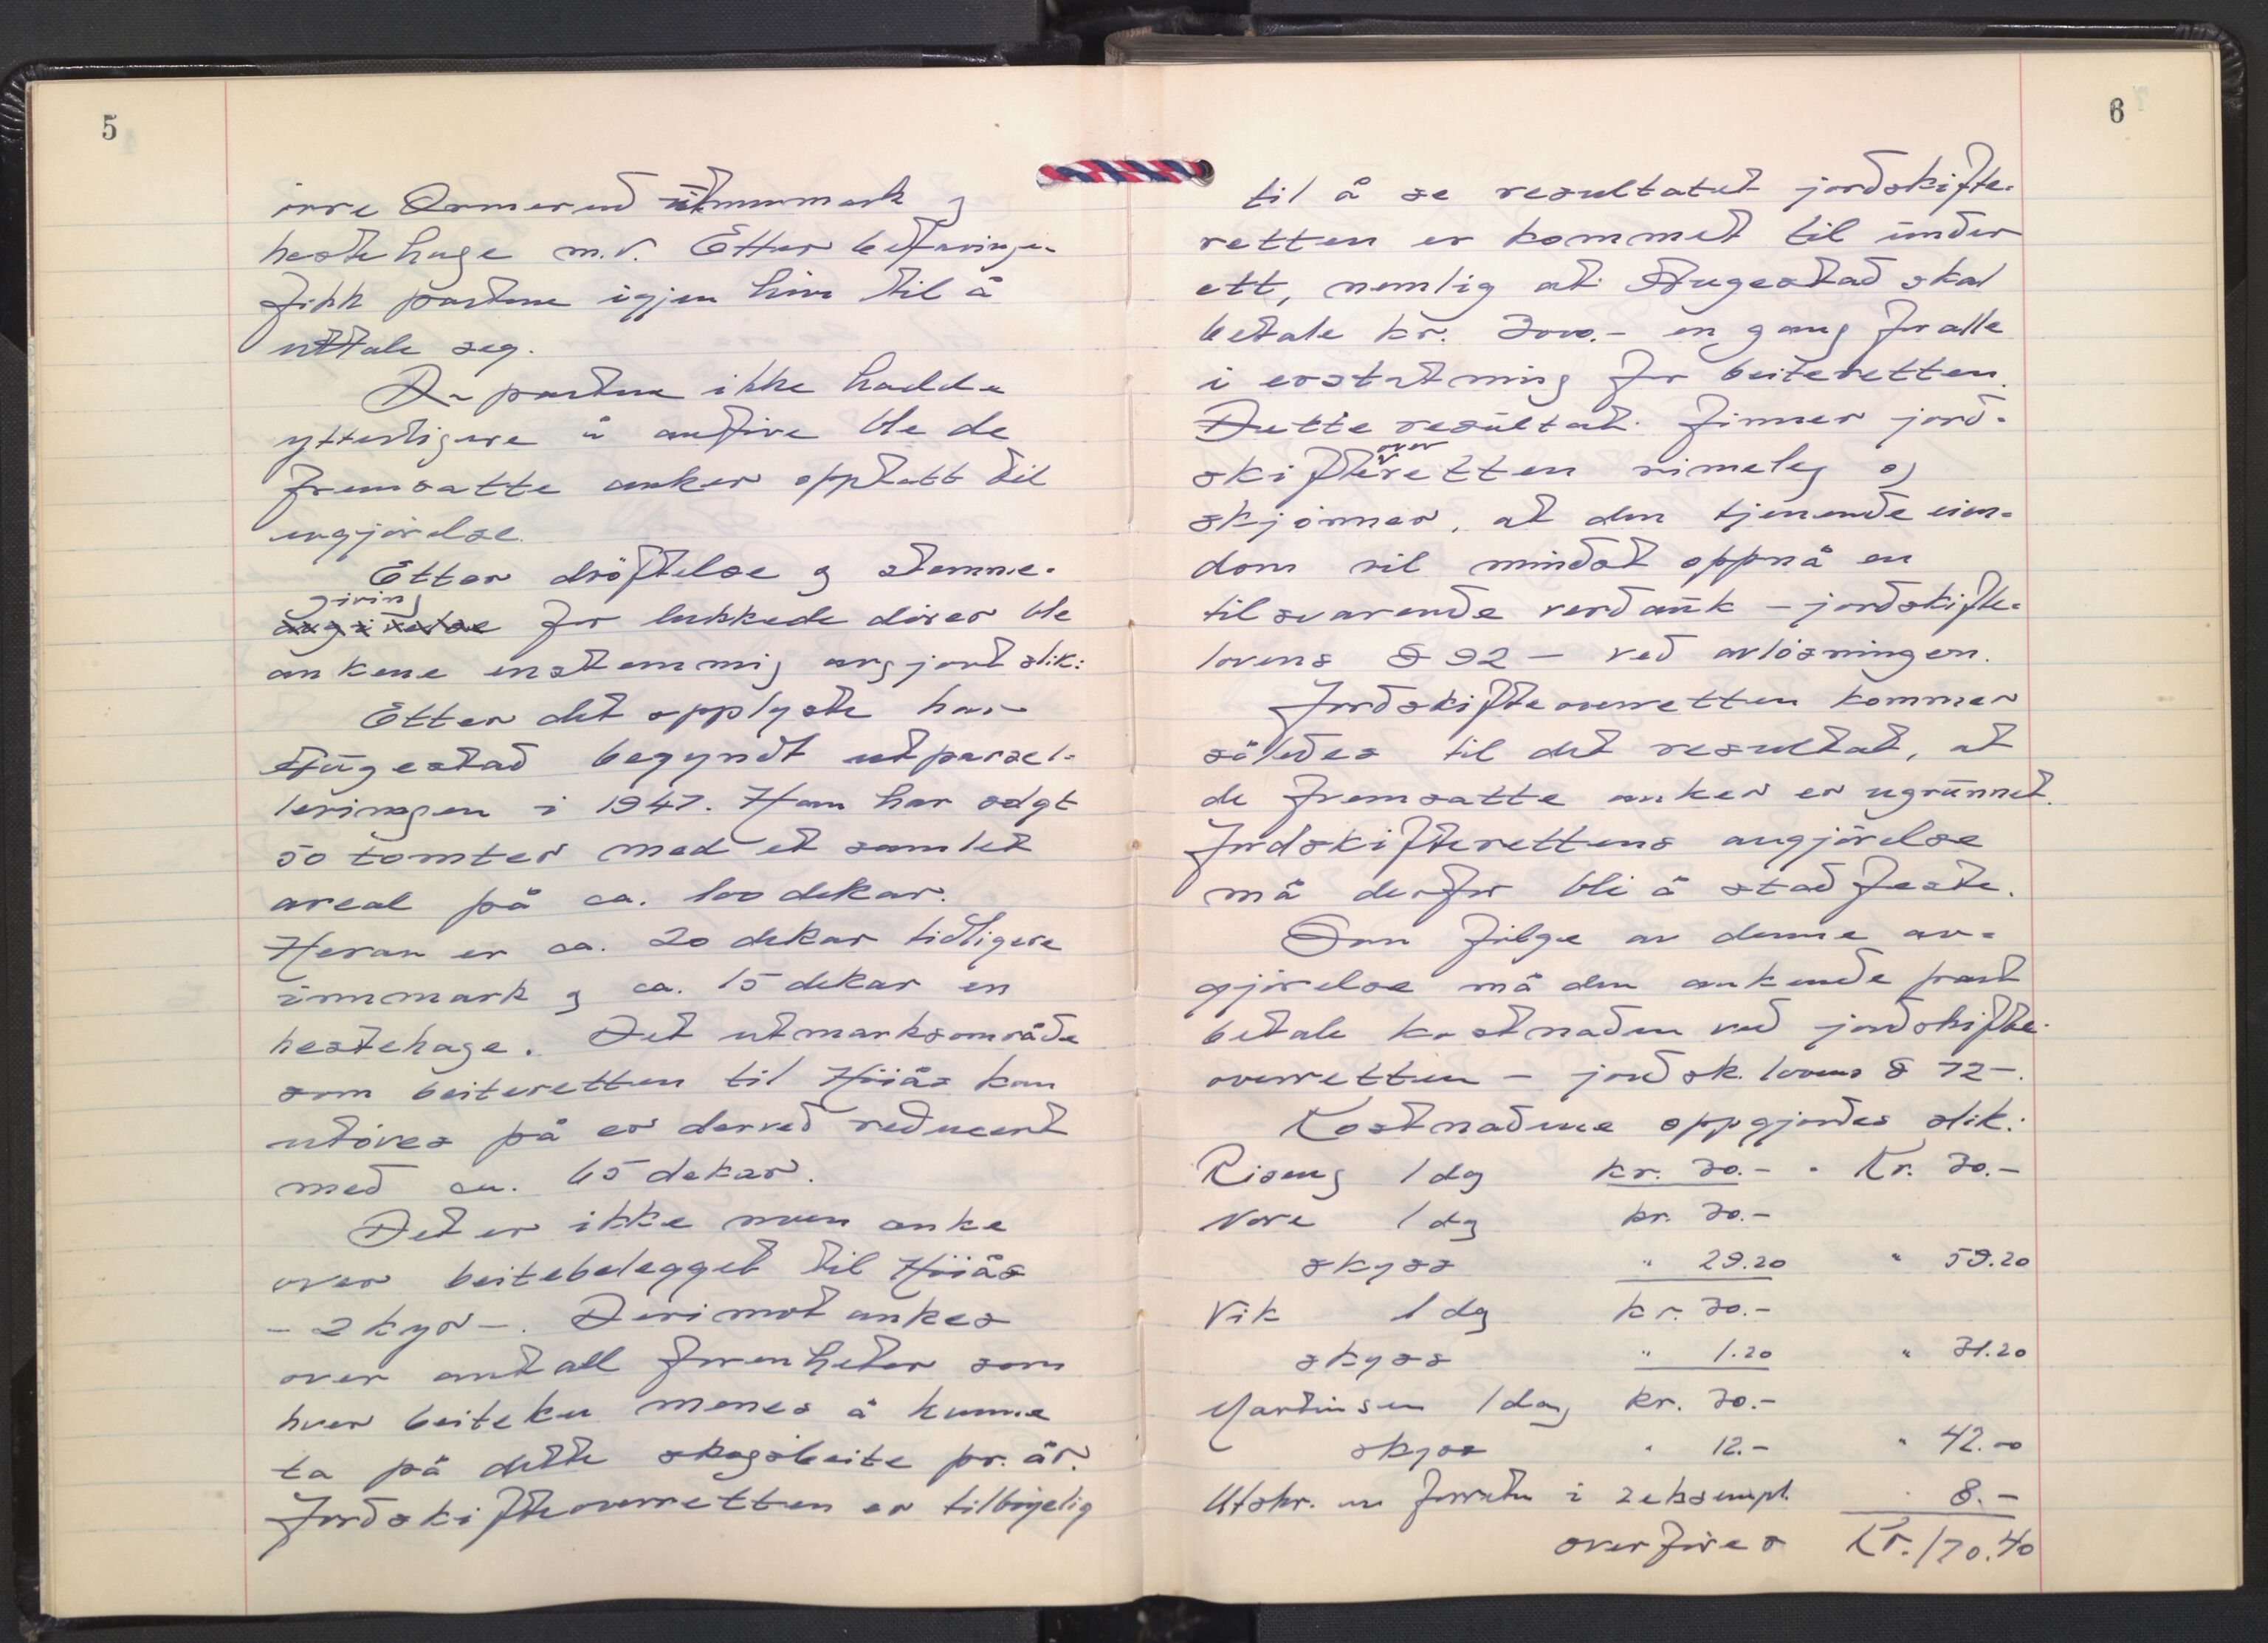 5
övre Ormerud innmark og
hestehage m.v. Etter befaringen
fikk partene igjen höve til å
uttale seg.
Da partene ikke hadde
ytterligere å anføre ble de
fremsatte anker opptatt til
avgjörelse.
Etter dröftelse og stemme-
givning for lukkede dörer ble
ankene enstemmig avgjort slik:
Etter det opplyste har
Haugestad begyndt utparsel-
leringen i 1947. Han har solgt
50 tomter med et samlet
areal på ca. 100 dekar.
Herav er ca. 20 dekar tidligere
innmark og ca. 15 dekar en
hestehage. Det utmarksområde
som beiteretten til Höiås kan
utöves på er derved redusert
med ca. 65 dekar.
Det er ikke noen anke
over beitebelegget til Höiås
- 2 kyr -. Derimot ankes
over antall forenheter som
hver beiteku menes å kunne
ta på dette skogsbeite pr. år.
Jordskifteoverretten er tilböyelig
6
til å se resultatet jordskifte-
retten er kommet til under
ett, nemlig at Haugestad skal
betale kr. 3000.- en gang for alle
i erstatning for beiteretten.
Dette resultat finner jord-
skifteoverretten rimeleg og
skjönner, at den tjenende eien-
dom vil mindst oppnå en
tilsvarende verdauk - jordskifte-
lovens § 92 - ved avlösningen.
Jordskifteoverretten kommer
således til det resultat, at
de fremsatte anker er ugrunnet.
Jordskifterettens avgjörelse
må derfor bli å stadfeste.
Som fölge av denne av-
gjörelse må den ankende part
betale kostnaden ved jordskifte-
overretten - jordsk. lovens § 72 -.
Kostnadene oppgjordes slik:
Riseng 1 dag kr. 30.- " Kr. 30.-
Nore 1 dag kr. 30.-
skyss " 29.20 " 59.20
Vik 1 dag kr. 30.-
skyss " 1.20 " 31.20
Martinsen 1 dag kr. 30.-
skyss " 12.- " 42.00
Utskr. av forretn i 2 eksempl. " 8.-
overföres Kr. 170.40